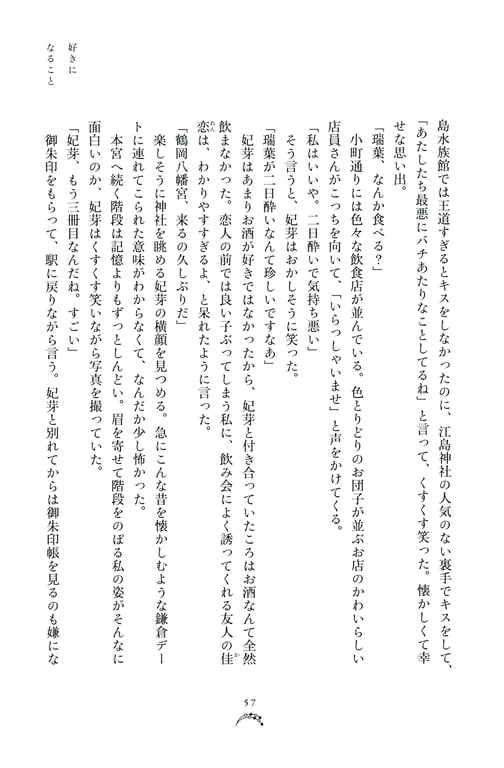 島水族館では王道すぎるとキスをしなかったのに、江島神社の人気のない裏手でキスをして、
「あたしたち最悪にバチあたりなことしてるね」と言って、くすくす笑った。懐かしくて幸
せな思い出。
「瑞葉、なんか食べる？」
小町通りには色々な飲食店が並んでいる。色とりどりのお団子が並ぶお店のかわいらしい
店員さんがこっちを向いて、「いらっしゃいませ」と声をかけてくる。
「私はいいや。二日酔いで気持ち悪い」
そう言うと、妃芽はおかしそうに笑った。
「瑞葉が二日酔いなんて珍しいですなあ」
妃芽はあまりお酒が好きではなかったから、妃芽と付き合っていたころはお酒なんて全然
飲まなかった。恋人の前では良い子ぶってしまう私に、飲み会によく誘ってくれる友人の佳
か
恋は、わかりやすすぎるよ、と呆れたように言った。
れん
「鶴岡八幡宮、来るの久しぶりだ」
楽しそうに神社を眺める妃芽の横顔を見つめる。急にこんな昔を懐かしむような鎌倉デー
トに連れてこられた意味がわからなくて、なんだか少し怖かった。
本宮へ続く階段は記憶よりもずっとしんどい。眉を寄せて階段をのぼる私の姿がそんなに
面白いのか、妃芽はくすくす笑いながら写真を撮っていた。
「妃芽、もう三冊目なんだね。すごい」
御朱印をもらって、駅に戻りながら言う。妃芽と別れてからは御朱印帳を見るのも嫌にな
好きに
なること
57